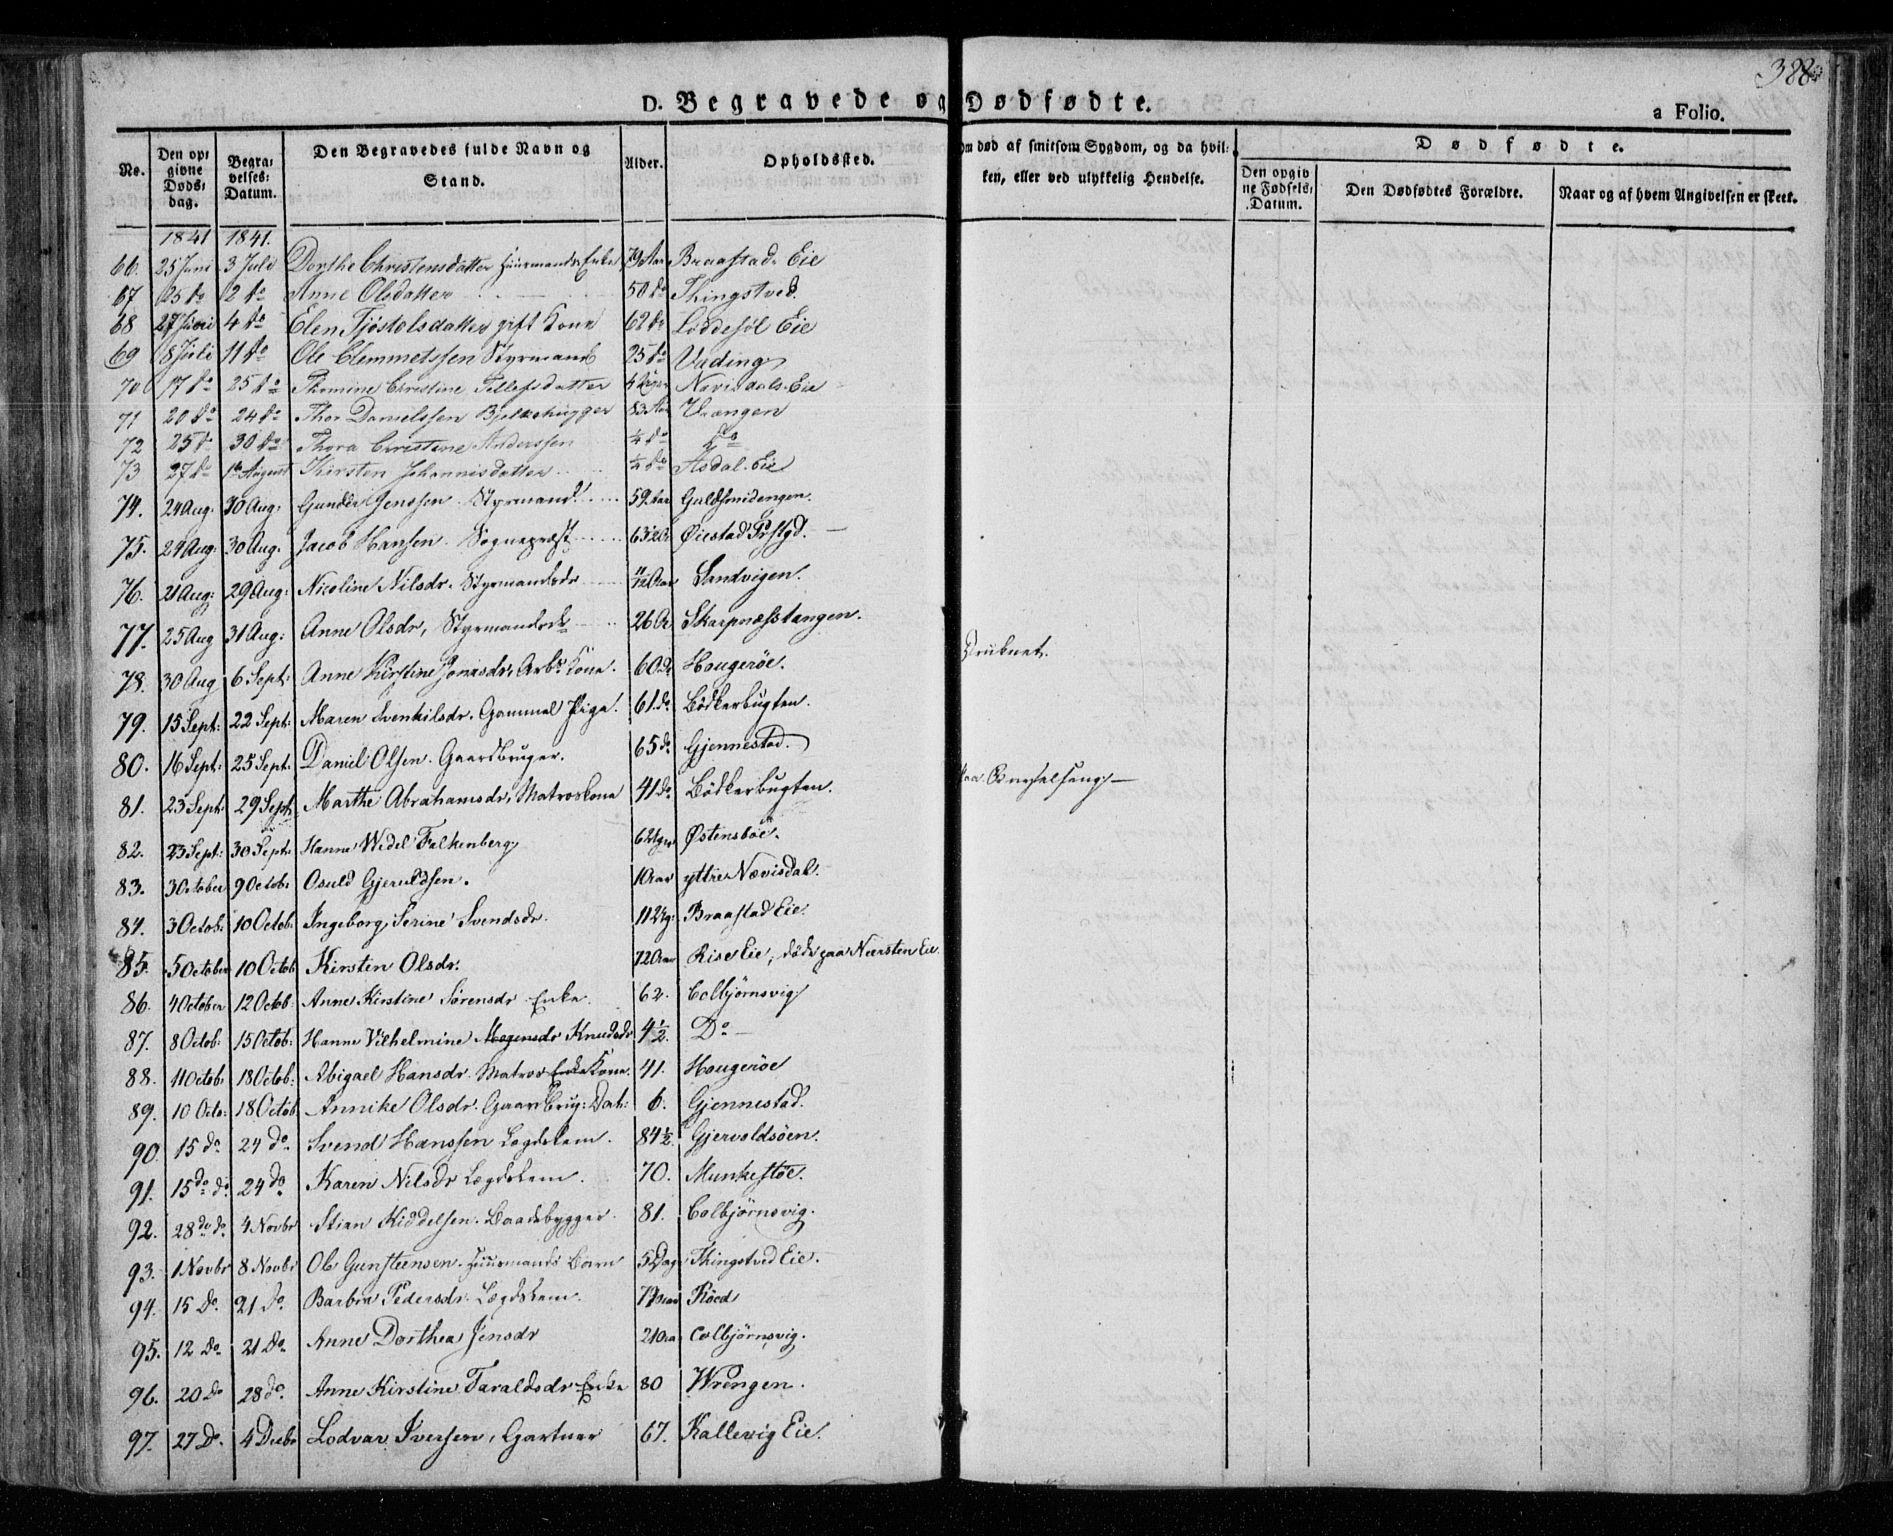 388
D. Begravede og Dødfødte.
a Folio.
No. Den opgivne Dødsdag. Begravelses-Datum. Den Begravedes fulde Navn og Stand. Alder. Opholdssted. Om død af smitsom Sygdom, og da hvilken, eller ved ulykkelig Hendelse. Dødfødte. Den opgivne Fødsels-Datum. Den Dødfødtes Forældre. Naar og af hvem Angivelsen er skeet.
1841 1841.
66. 25 Juni 3 Juli Dorthe Christensdatter Huusmands Enke 79 Aar Braastad Eie
67 25 do 2 do Anne Olsdatter 50 do Thingstved.
68 27 Juni 4 do Elen Tjøstolsdatter gift Kone 62 do Løddesøl Eie
69 8 Juli 11 do Ole Clemmetssen Styrmand 25 do Vrding
70 17 do 25 do Thomine Christine Tellefsdatter 4 Uger Nævisdals Eie
71 20 do 24 do Thor Danielssen Bjelkehugger 83 Aar Vrængen
72 25 do 30 do Thora Christine Anderssen 1/4 do do
73 27 do 1 August Kirsten Johannisdatter 1/4 do Asdal Eie
74. 24 Aug: 30 Aug: Gunder Jenssen. Styrmand 59 Aar Guldsmidengen.
75. 24 Aug: 30 Aug: Jacob Hansen. Sognepræst 63 1/2 Øiestad Prstgd.
76. 21 Aug: 29 Aug: Nicoline Nilsdr. Styrmandsdr 11/12 Aar Sandvigen.
77. 25 Aug 31 Aug: Anne Olsdr, Styrmandsdr 26 Ar Skarpnæsstangen.
78. 30 Aug 6 Sept: Anne Kirstine Jonasdr. Arbs Kone. 60 do Hougerøe. Druknet.
79. 15 Sept: 22 Sept: Maren Svenkilsdr. Gammel Pige. 61 do Bödkerbugten.
80. 16 Sept: 25 Sept: Daniel Olsen. Gaardbruger. 65 do Gjennestad.
81. 23 Sept 29 Sept: Marthe Abrahamsdr, Matroskone 41 do Bödkerbugten. paa Barselseng
82. 23 Sept: 30 Sept: Hanne Wedel Falkenberg 62 Østensbøe.
83. 3 October 9 Octobr Osuld Gjeruldsen. 10 Aar yttre Nævisdal.
84. 3 Octob: 10 Octob: Ingeborg Serine Svendsdr. 11 Braastad Eie.
85. 5 October 10 Octob: Kirsten Olsdr. 72 Aar Rise Eie, døde paa Nærsten Eie
86. 4 October 12 Octob: Anne Kirstine Sørensdr Enke. 62. Colbjørnsvig
87. 8 Octob: 15 Octob: Hanne Vilhelmine Mogensdr Knudsdr 4 1/2. Do
88. 11 Octob 18 Octob: Abigael Hansdr. Matros Enke Kone. 41. Hougerøe
89. 10 Octo: 18 Octob Annike Olsdr. Gaardbrug: Dat: 6. Gjennestad.
90. 15 do. 24 do. Svend Hanssen Lægdslem. 84 1/2. Gjervoldsøen.
91. 15 do do. 24 do Karen Nilsdr Lægdslem. 70. Munkestøe.
92. 28 do do 4 Novbr Stian Kiddelsen. Baadsbygger. 81. Colbjørnsvig.
93. 1 Novbr 8 Novbr Ole Gunsteensen. Huusmands Barn 5 Dage Thingstved Eie.
94. 15 Do. 21 Do. Barbra Pedersdr. Lægdslem. 79 Aar Röed
95. 12 Do 21 Do. Anne Dorthea Jensdr 21 Aar Colbjørnsvig.
96. 20 Do 28 do. Anne Kirstine Taraldsdr Enke 80 Wrengen.
97. 27 Do. 4 Decbr Lodvar Iversen, Gartner 67. Kallevig Eie.